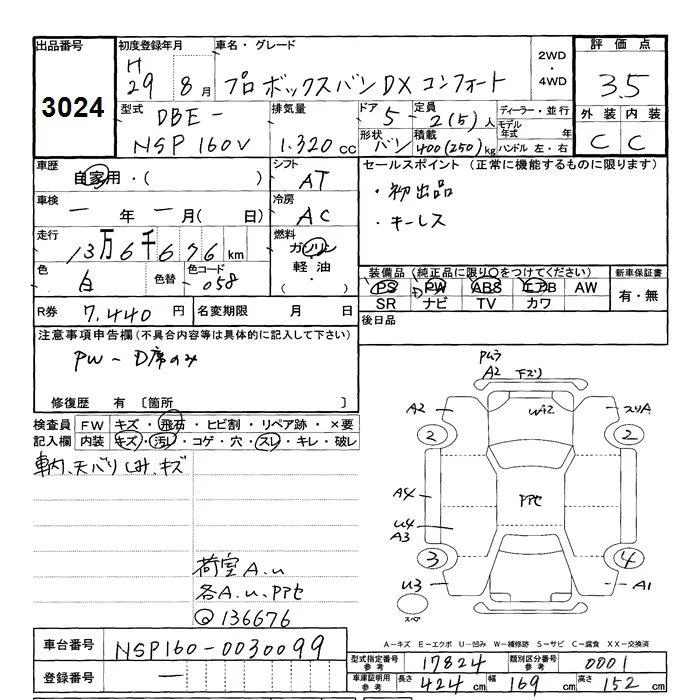 出品番号 初度登録年月 車名・グレード 2WD・4WD 評価点
3024 H29 8月 プロボックスバンDXコンフォート 3.5
型式 DBE-NSP160V 排気量 1.320cc
ドア 5 定員 2(5)人 ディーラー・並行
形状 バン 積載 400(250)kg モデル年式 年 ハンドル 左・右
外装 内装
C C
車歴 自家用・( ) シフト AT
車検 一 年 一 月( 日) 冷房 AC
走行 13万6千676km 燃料 ガソリン 軽油・( )
色 白 色替 色コード 058
R券 7,440円 名変期限 月 日
セールスポイント(正常に機能するものに限ります)
・初出品
・キーレス
装備品(純正品に限り○をつけてください) 新車保証書
PS PW ABS エアB AW 有・無
SR ナビ TV カワ
後日品
注意事項申告欄(不具合内容等は具体的に記入して下さい)
PW-D席のみ
修復歴 有 〔箇所 〕
検査員記入欄 FW キズ・飛石・ヒビ割・リペア跡・×要
内装 キズ・汚レ・コゲ・穴・スレ・キレ・破レ
車内、天バリしみ、キズ
荷室A.u
各A.u.PPセ
136676
A2 下ズリ
A2 WA2 スリA
2 2
A4 PPセ
U4
A3
3 4
U3 A1
スペア
A-キズ E-エクボ U-凹み W-補修跡 S-サビ C-腐食 XX-交換済
車台番号 NSP160-0030099
登録番号 一
型式指定番号参考 17824 類別区分番号参考 0001
車庫証明用参考 長さ 424cm 幅 169cm 高さ 152cm